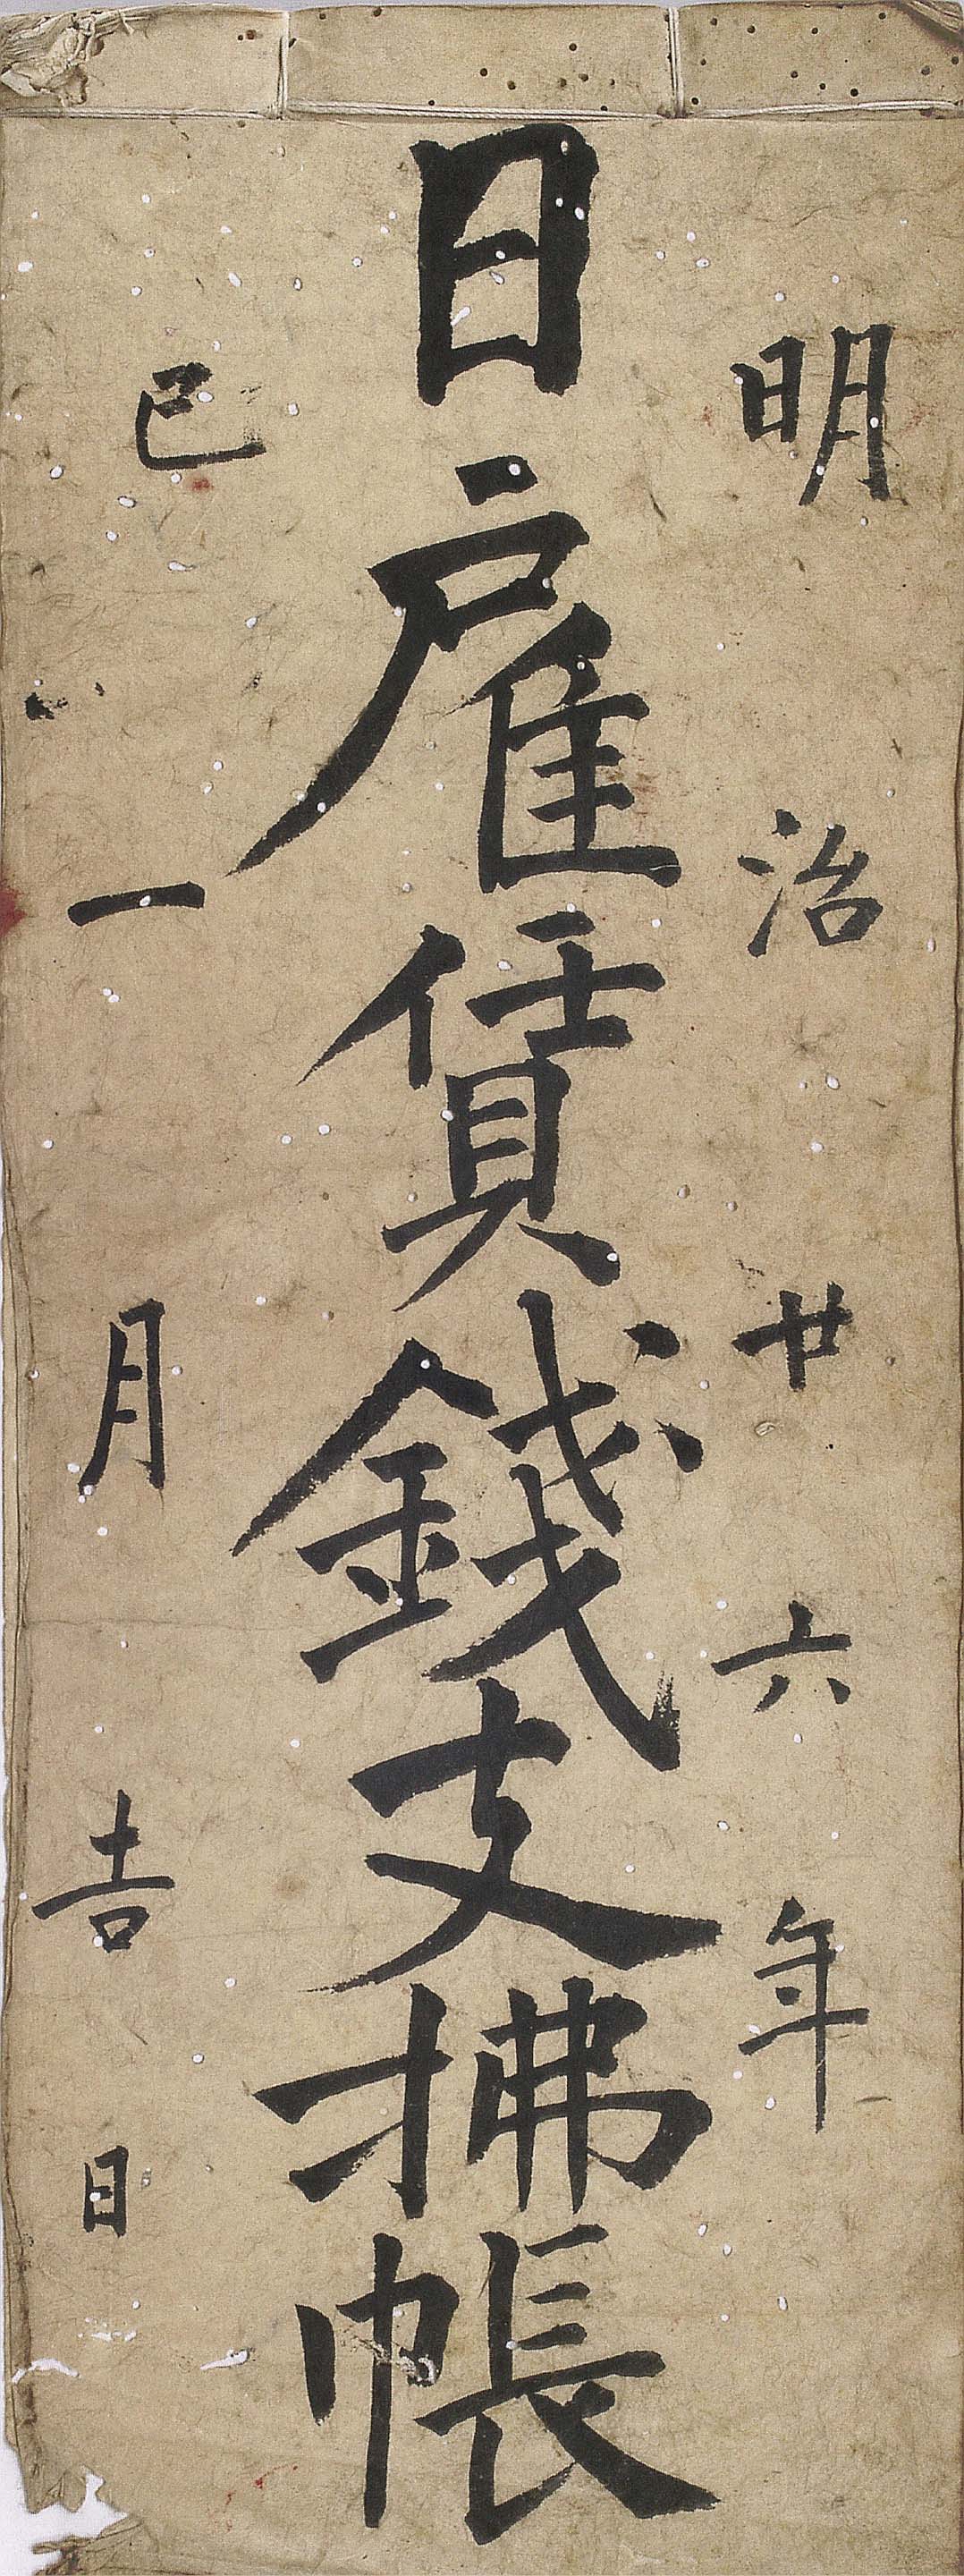 明治廿六年
日雇賃錢支拂帳
巳一月吉日